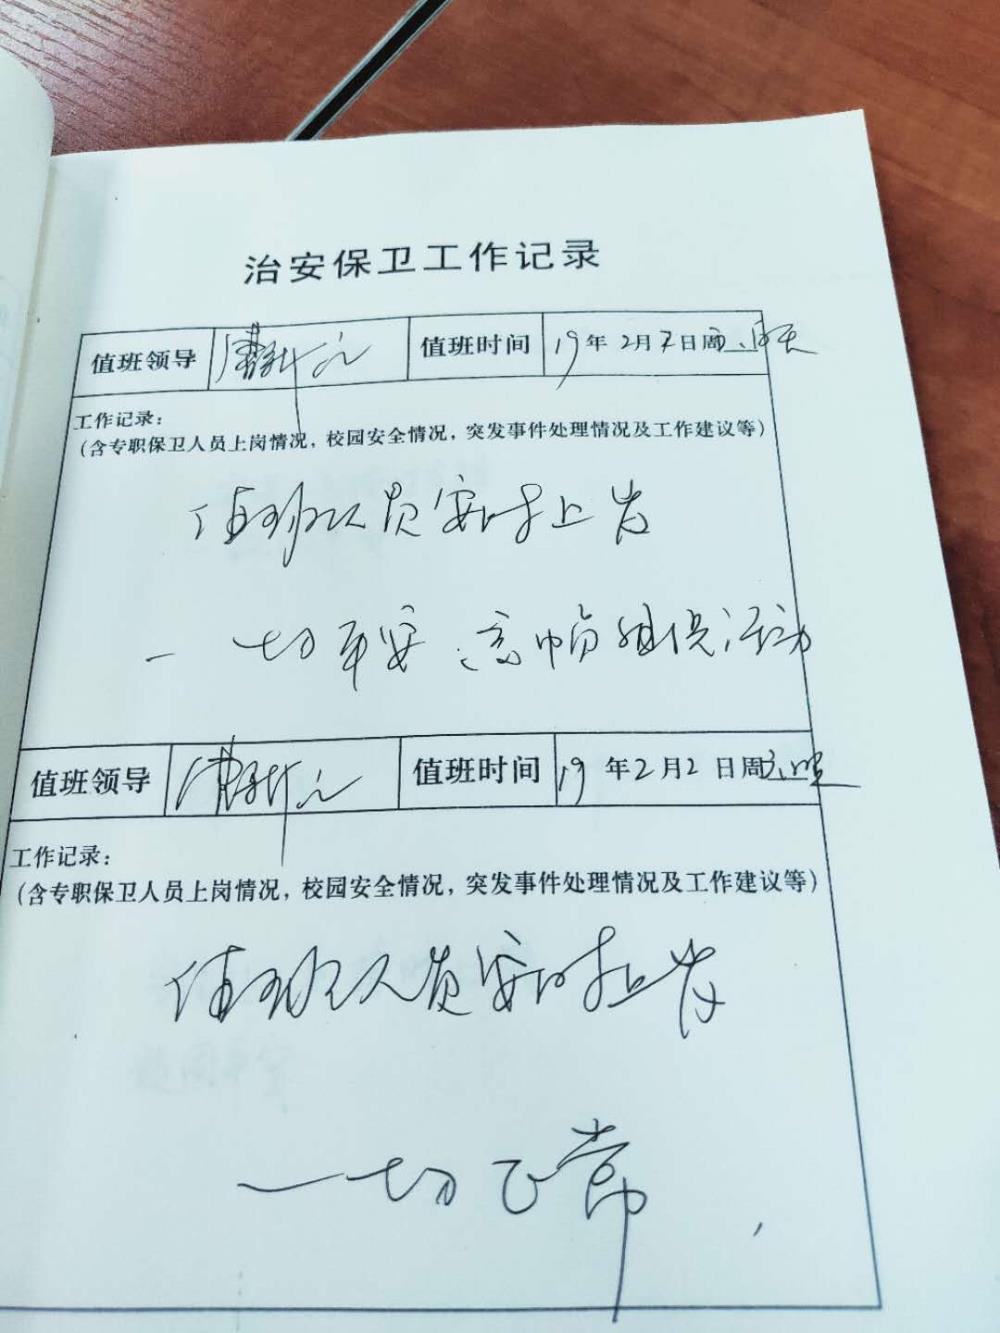 治安保卫工作记录
值班领导 值班时间 19年2月7日周
工作记录:
(含专职保卫人员上岗情况,校园安全情况,突发事件处理情况及工作建议等)
值班人员按时上岗
一切平安
活动
值班领导 值班时间 19年2月2日周
工作记录:
(含专职保卫人员上岗情况,校园安全情况,突发事件处理情况及工作建议等)
值班人员按时上岗
一切正常